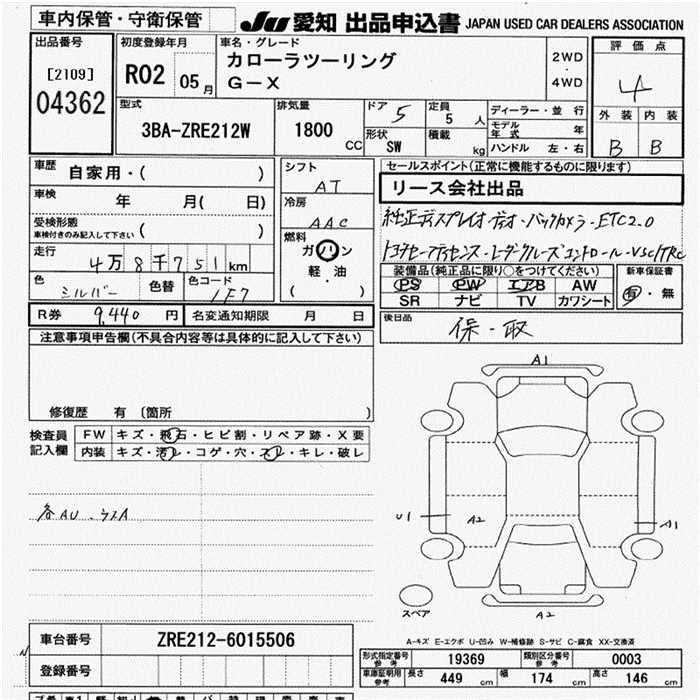 車内保管・守衛保管
JU 愛知 出品申込書 JAPAN USED CAR DEALERS ASSOCIATION
出品番号
[2109]
04362
初度登録年月
R02 05月
車名・グレード
カローラツーリング
G-X
2WD
・
4WD
評価点
4
外装 内装
B B
型式
3BA-ZRE212W
排気量
1800 CC
ドア 5
形状 SW
定員 5 人
積載 kg
ディーラー・並行
モデル年式 年
ハンドル 左・右
車歴 自家用・( )
車検 年 月( 日)
受検形態
車検付きのみ記入して下さい ( )
走行 4万8千751km
色 シルバー 色替 色コード 1F7
シフト AT
冷房 AAC
燃料
ガソリン
軽・油
( )
セールスポイント(正常に機能するものに限ります)
リース会社出品
純正ディスプレイオーディオ・バックカメラ・ETC2.0
トヨタセーフティセンス・レーダークルーズコントロール・VSC/TRC
装備品(純正品に限り○をつけてください)
PS PW エアB AW
SR ナビ TV カワシート
新車保証書
有・無
R券 9,440 円 名変通知期限 月 日
後日品 保・取
注意事項申告欄(不具合内容等は具体的に記入して下さい)
修復歴 有〔箇所 〕
検査員記入欄
FW キズ・飛石・ヒビ割・リペア跡・X要
内装 キズ・汚レ・コゲ・穴・スレ・キレ・破レ
各AU・ラスA
A1
U1 A2 A1
A2
スペア
A-キズ E-エクボ U-凹み W-補修跡 S-サビ C-腐食 XX-交換済
車台番号 ZRE212-6015506
登録番号
形式指定番号 参考 19369 類別区分番号 参考 0003
車庫証明用 参考 長さ 449 cm 幅 174 cm 高さ 146 cm